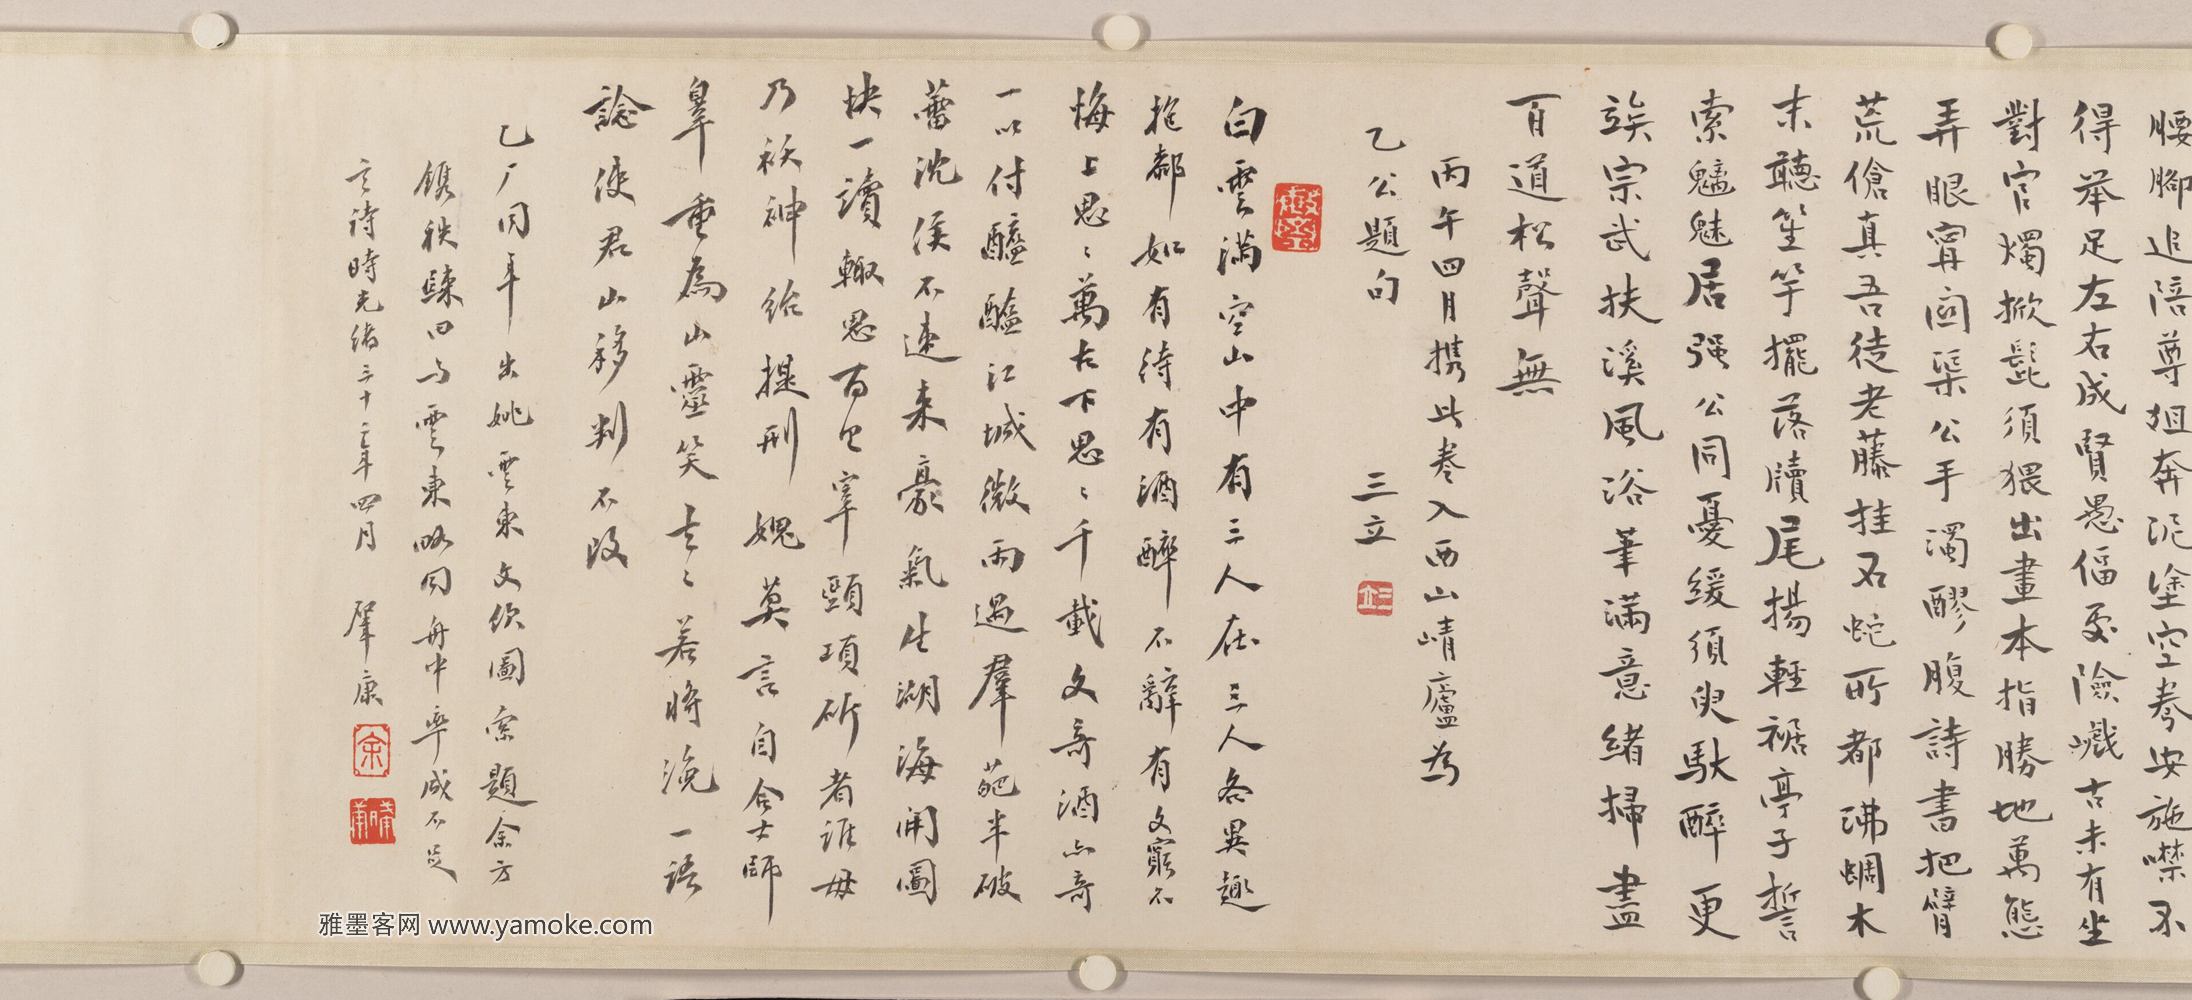 腰腳追陪尊狙奔泥塗空拳安施噤不
得舉足左右成賢愚偪夏險巇古未有坐
對官燭掀髭須猥出畫本指勝地萬態
弄眼寧囪渠公手濁醪腹詩書把臂
荒傖真吾徒老藤挂石蛇所都沸蜩木
末聽笙竽擺落牘尾揚輕裾亭子誓言
索魑魅居强公同憂緩須臾馱醉更
俟宗武扶溪風浴筆滿意緒掃盡
百道松聲無
丙午四月攜此卷入西山崝廬為
乙公題句 三立
三立
白雲滿空山中有三人在三人各異趣
抱都如有待有酒醉不辭有文窮不
悔上思萬古下思千載文奇酒亦奇
一以付醯醢江城微雨過群葩半破
蕾沈侯不速來豪氣生湖海開圖
快一讀輒思百
頸項斫者誰毋
乃袄神紿提刑媿莫言自合士師
辠重為山靈笑若將浼一語
諗使君山移判不改
乙厂同年出姚雲東文飲圖索題余方
鐫秩歸田與雲東略同舟中率成不足
言詩時光緒三十二年四月 肇康
余
肇康
雅墨客网 www.yamoke.com